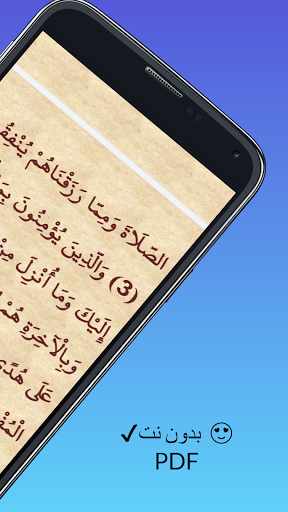 الصَّلَاةَ وَمِمَّا رَزَقْنَاهُمْ
(3) وَالَّذِينَ يُؤْمِنُونَ
إِلَيْكَ وَمَا أُنْزِلَ مِنْ
وَبِالْآخِرَةِ هُمْ
عَلَى هُدًى
✔بدون نت 😍
PDF